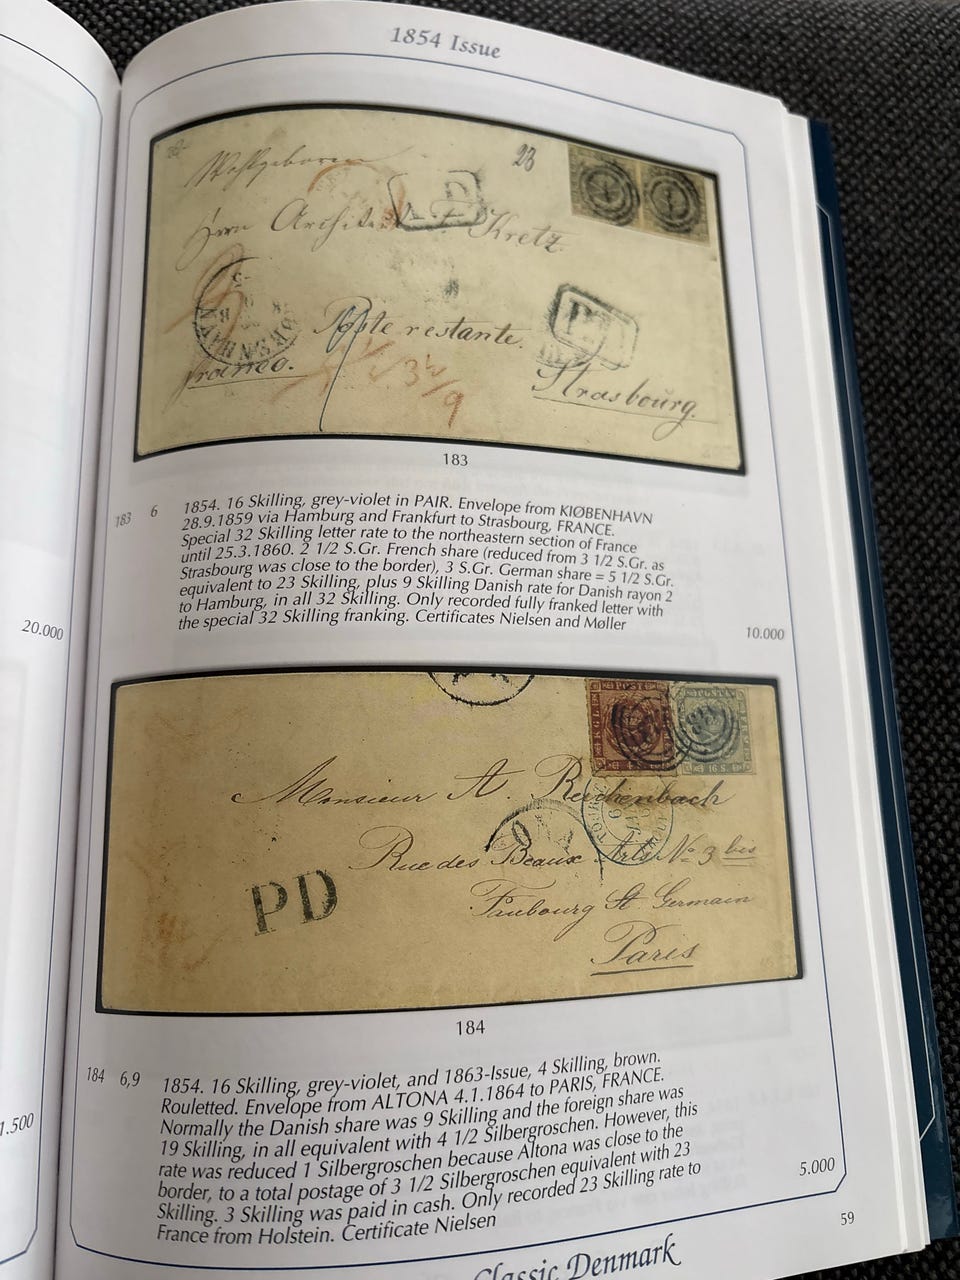 1854 Issue
Wohlgeboren
23
P D
Herrn Architekt Kretz
Poste restante.
PD
franco.
3½/9
Strasbourg.
183
183 6 1854. 16 Skilling, grey-violet in PAIR. Envelope from KIØBENHAVN
28.9.1859 via Hamburg and Frankfurt to Strasbourg, FRANCE.
Special 32 Skilling letter rate to the northeastern section of France
until 25.3.1860. 2 1/2 S.Gr. French share (reduced from 3 1/2 S.Gr. as
Strasbourg was close to the border), 3 S.Gr. German share = 5 1/2 S.Gr.
equivalent to 23 Skilling, plus 9 Skilling Danish rate for Danish rayon 2
to Hamburg, in all 32 Skilling. Only recorded fully franked letter with
the special 32 Skilling franking. Certificates Nielsen and Møller
20.000
10.000
POST
POSTA
KGL
4 S
16 S.
Monsieur A. Reichenbach
Rue des Beaux Arts No 3 bis
PD
Faubourg St Germain
Paris
184
184 6,9 1854. 16 Skilling, grey-violet, and 1863-Issue, 4 Skilling, brown.
Rouletted. Envelope from ALTONA 4.1.1864 to PARIS, FRANCE.
Normally the Danish share was 9 Skilling and the foreign share was
19 Skilling, in all equivalent with 4 1/2 Silbergroschen. However, this
rate was reduced 1 Silbergroschen because Altona was close to the
border, to a total postage of 3 1/2 Silbergroschen equivalent with 23
Skilling. 3 Skilling was paid in cash. Only recorded 23 Skilling rate to
France from Holstein. Certificate Nielsen
1.500
5.000
59
Classic Denmark